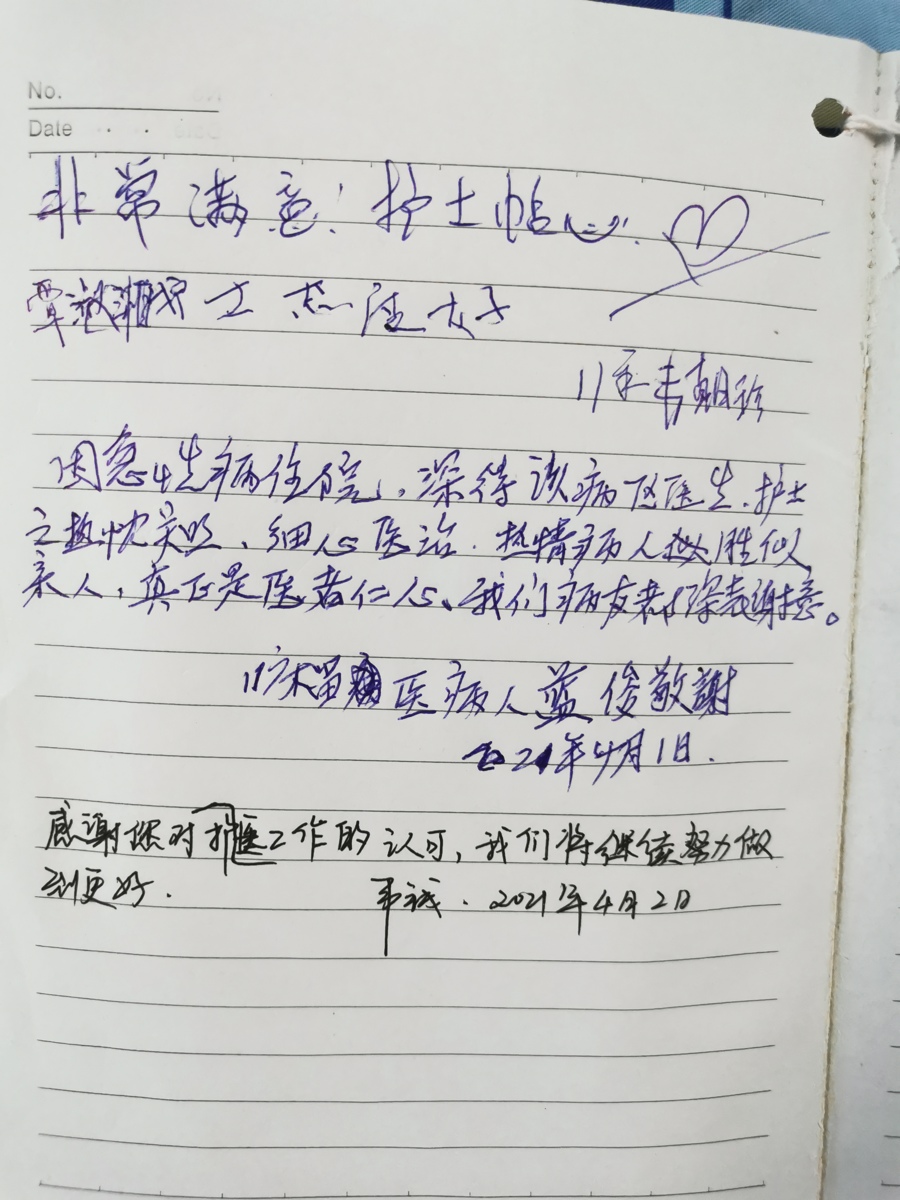 No.
Date
非常满意！护士帖心.
覃淑湘护士 态度太好
11床韦朝珍
因急性病住院，深待该病区医生、护士
之热忱关照、细心医治.热情病人拟胜似
亲人，真正是医者仁心、我们病友都深表谢意。
11床留医病人蓝俊敬謝
21年4月1日.
感谢您对护医工作的认可，我们将继续努力做
到更好. 韦诚.2021年4月2日